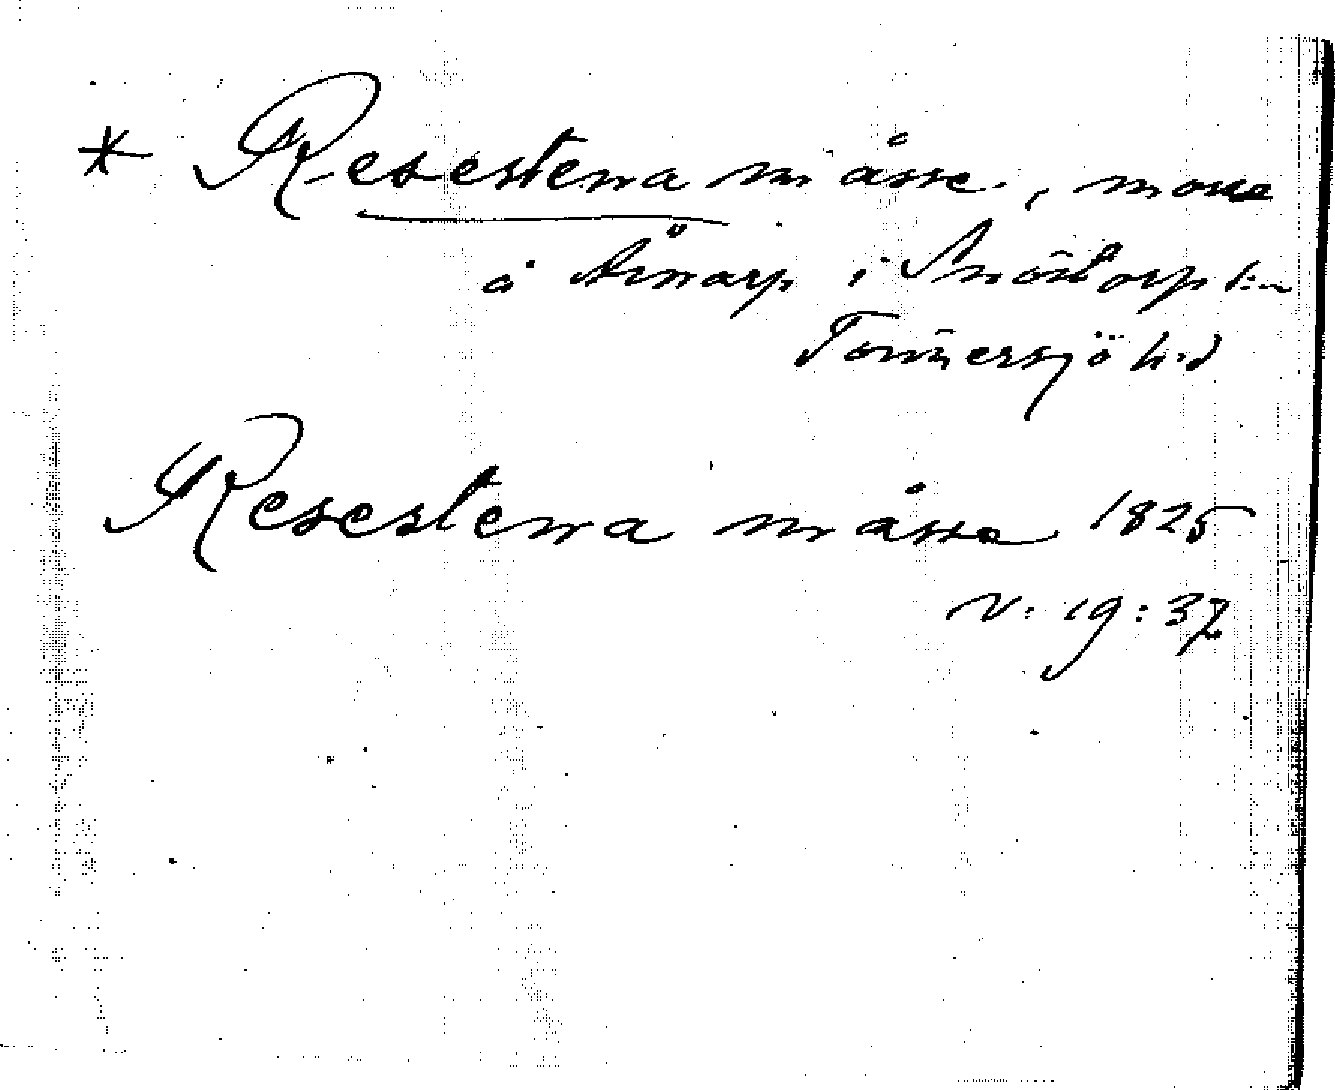 * Resestena måsse, mosse
å Årnarp i Snöstorp s:n
Tönnersjö h:d
Resestena måsse 1825
V: 19: 37